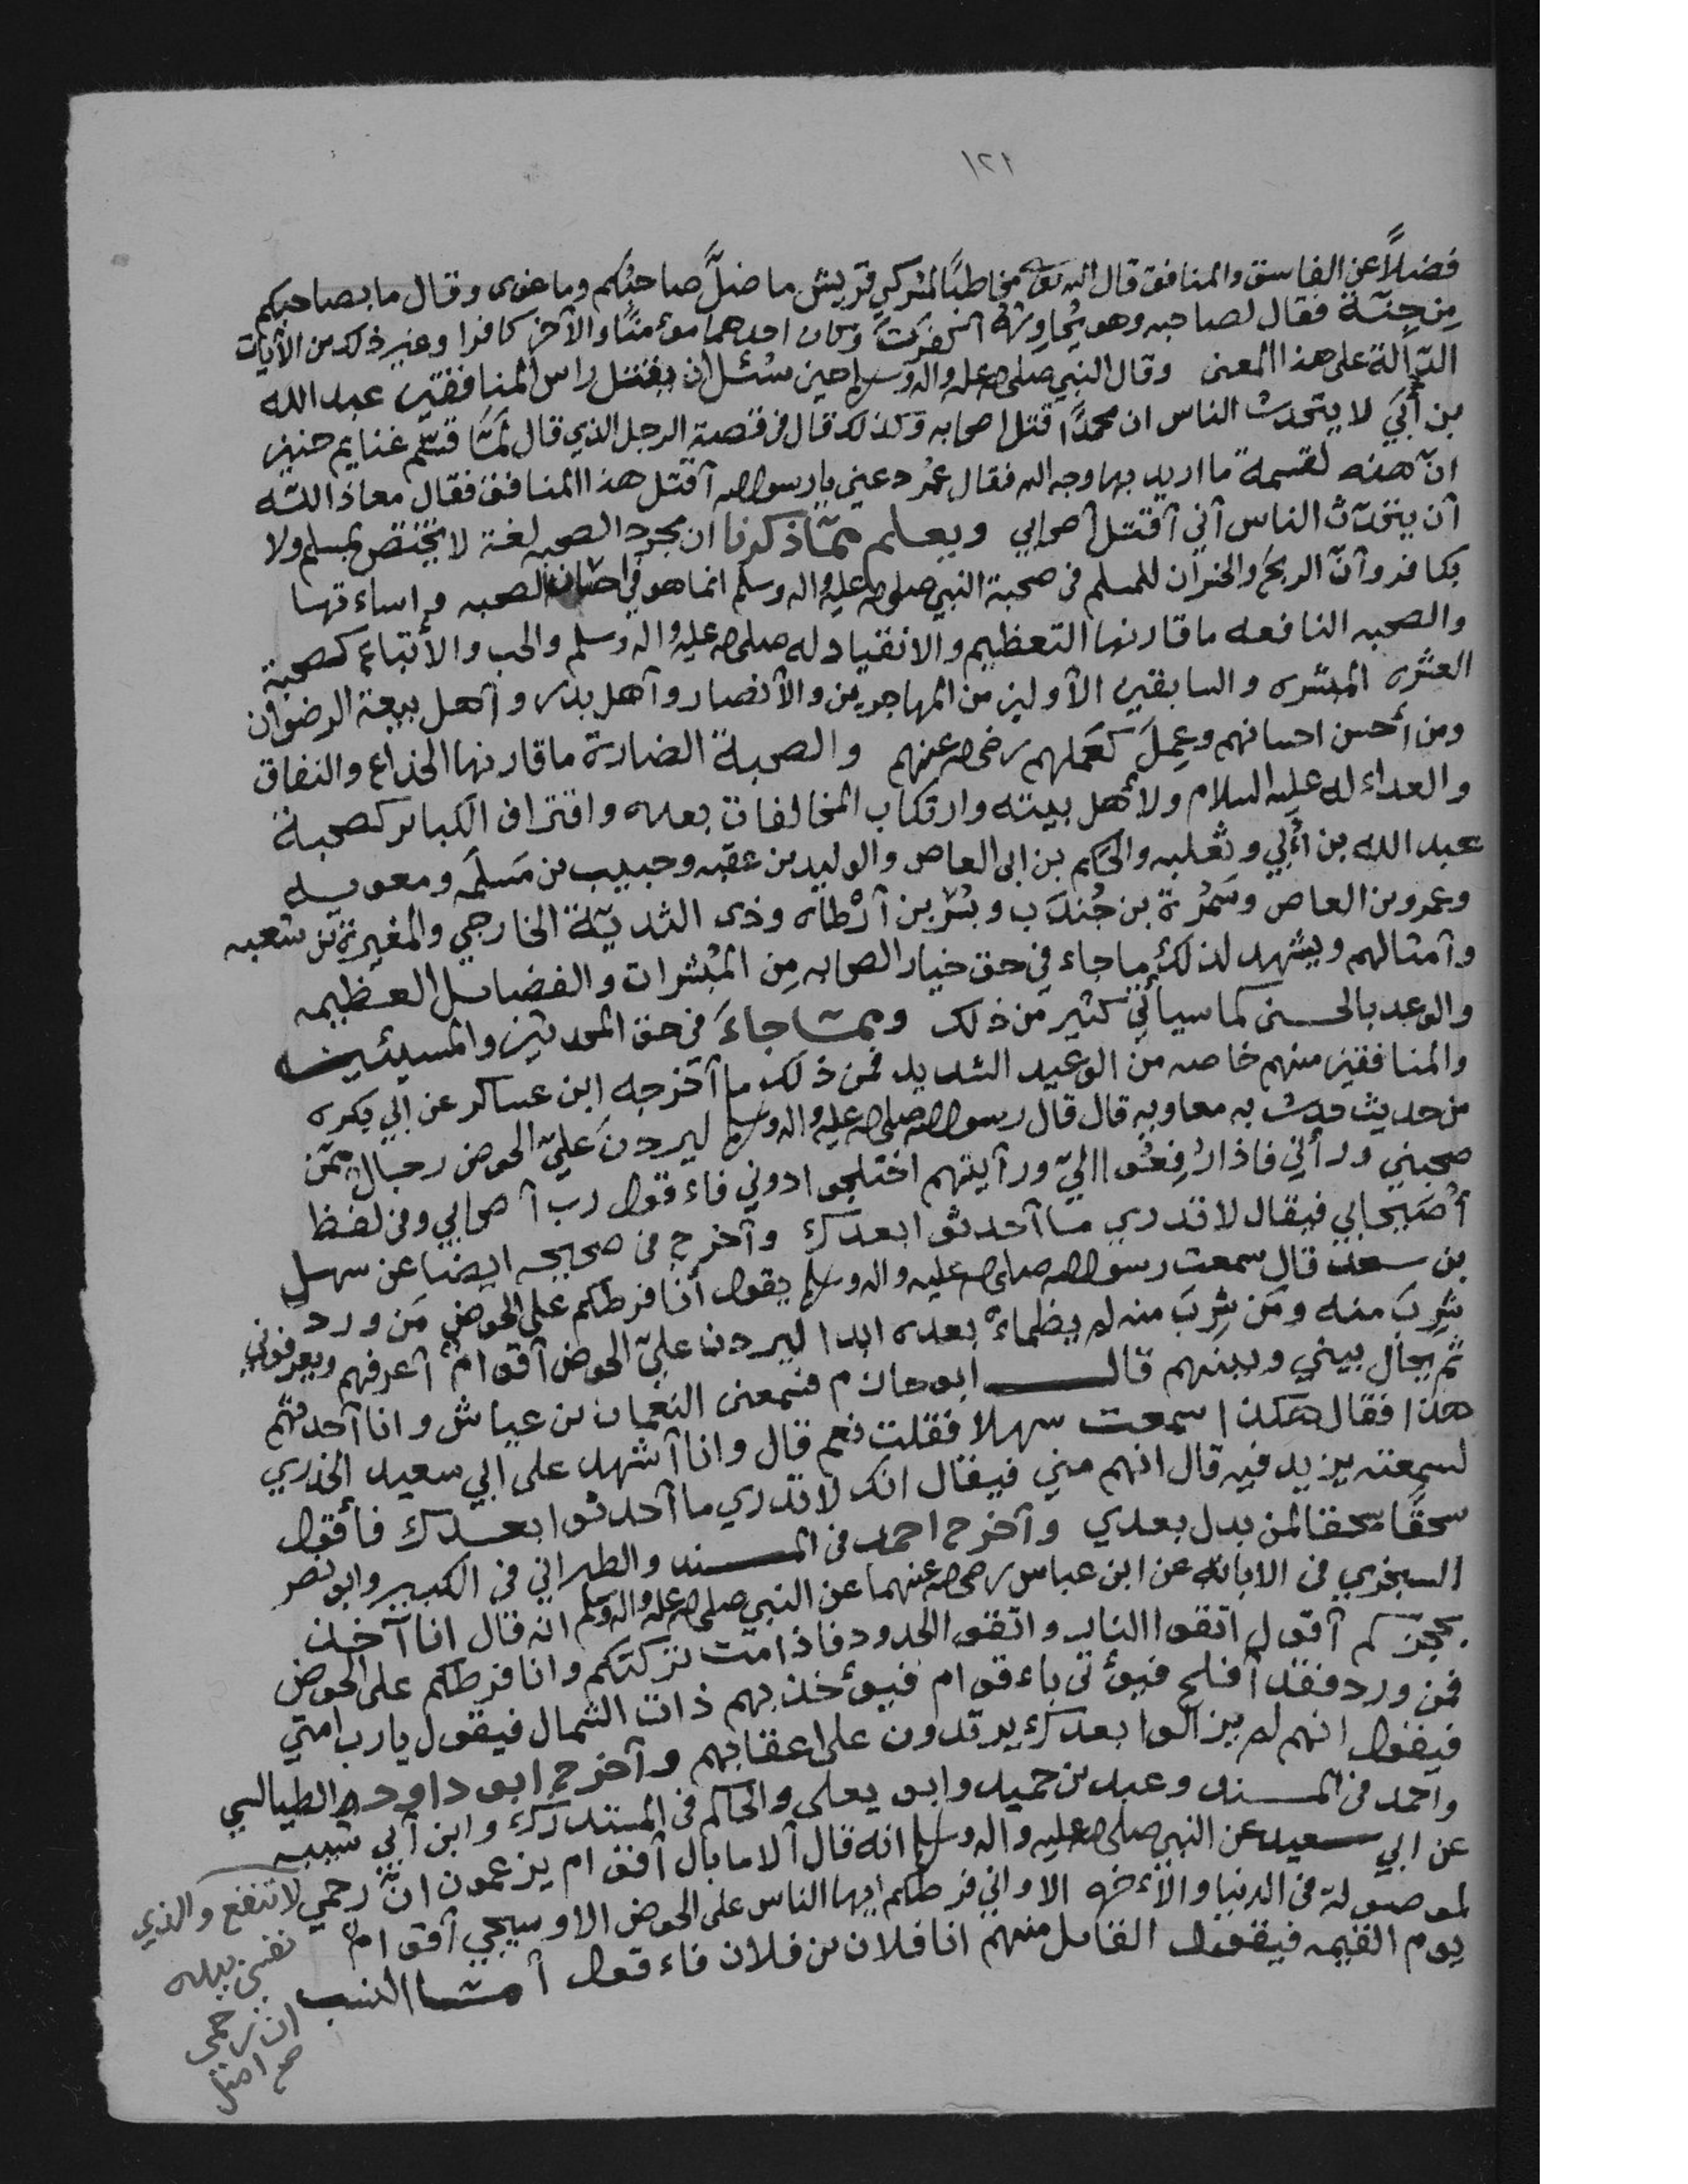 ١٢١
فضلاً عن الفاسق والمنافق قال الله تعالى مخاطبًا لمشركي قريش ما ضلَّ صاحبُكم وما غوى وقال ما بصاحبكم
مِن جِنّة فقال لصاحبه وهو يُحاوِرُهُ اكفرتَ وكان احدهما موءمنًا والآخر كافرا وغير ذلك من الآيات
الدّالة على هذا المعنى وقال النبي صلى الله عليه واله وسلم حين سُئل ان يقتل راس المنافقين عبد الله
بن أُبَي لا يتحدث الناس ان محمدًا قتل اصحابه وكذلك قال في قصة الرجل الذي قال لمّا قسّم غنايم حنين
انّ هذه لقسمة ما اريد بها وجه الله فقال عُمر دعني يا رسول الله آقتل هذا المنافق فقال معاذ الله
آن يتحدّث الناس آني آقتل آصحابي ويعلم ممّا ذكرنا ان مجرد الصحبه لغة لا يختص بمسلم ولا
بكافر وآنّ الربحَ والخسران للمسلم في صحبة النبي صلى الله عليه واله وسلم انما هو في احسان الصحبه واساءتها
والصحبه النافعه ما قارنها التعظيم والانقياد له صلى الله عليه واله وسلم والحب والأتباع كصحبة
العشره المبشره والسابقين الآولين من المهاجرين والآنصار وآهل بدر وآهل بيعة الرضوان
ومن أحسن احسانهم وعمِلَ كعَملهم رضي الله عنهم والصحبة الضارة ما قارنها الخداع والنفاق
والعداء له عليه السلام ولأهل بيته وارتكاب المخالفات بعده واقتراف الكبائر كصحبة
عبد الله بن أُبي وثعلبه والحكم بن ابي العاص والوليد بن عقبه وحبيب بن مَسلمَه ومعويه
وعمرو بن العاص وسَمُرة بن جُندَب وبُسْر بن آرْطاه وذي الثديّة الخارجي والمغيرة بن شعبه
وآمثالهم ويشهد لذلك ما جاء في حق خيار الصحابه مِن المبُشرات والفضائل العظيمه
والوعد بالحسنى كما سيأتي كثير من ذلك ومما جاءَ في حق المحدثين والمسيئين
والمنافقين منهم خاصه من الوعيد الشديد فمن ذلك ما آخرجه ابن عساكر عن ابي بكره
من حديث حدث به معاويه قال قال رسول الله صلى الله عليه واله وسلم ليردنَ عليّ الحوض رجال ممّن
صحبني ورآني فاذا رُفِعُوا اليّ ورآيتهم اختلجوا دوني فاءقول رب آصحابي وفي لفظ
أُصَيحابي فيقال لا تدري ما آحدثوا بعدك وآخرج في صحيحه ايضا عن سهل
بن سعد قال سمعت رسول الله صلى الله عليه واله وسلم يقول أنا فرطكم على الحوض مَن ورد
شرِبَ منه ومَن شرِبَ منه لم يظماءْ بعده ابدا ليردن عليّ الحوض آقوام آعرفهم ويعرفوني
ثم يحال بيني وبينهم قال ابو حازم فسمعني النعمان بن عياش وانا آحدثهم
هذا فقال هكذا سمعت سهلا فقلت نعم قال وانا آشهد على ابي سعيد الخدري
لسمعته يزيد فيه قال انهم مني فيقال انك لا تدري ما آحدثوا بعدك فأقول
سحقًا سحقا لمن بدل بعدي وآخرج احمد في المسند والطبراني في الكبير وابو نصر
السبخري في الابانه عن ابن عباس رضي الله عنهما عن النبي صلى الله عليه واله وسلم انه قال انا آخذ
بحجزكم آقول اتقوا النار واتقوا الحدود فاذا مت تركتكم وانا فرطكم على الحوض
فمن ورد فقد آفلح فيوءتى باءقوام فيوءخذ بهم ذات الشمال فيقول يا رب امتي
فيقول انهم لم يزالوا بعدك يرتدون على اعقابهم وآخرج ابو داود الطيالسي
واحمد في المسند وعبد بن حميد وابو يعلى والحاكم في المستدرك وابن آبي شيبه
عن ابي سعيد عن النبي صلى الله عليه واله وسلم انه قال آلا ما بال آقوام يزعمون انَّ رحمي لا تنفع والذي
نفسي بيده
ان رحمى
لموصولة في الدنيا والأءخره الا واني فرطكم ايها الناس على الحوض الا وسيجي آقوام
يوم القيمه فيقول القائل منهم انا فلان بن فلان فاءقول آما النسب